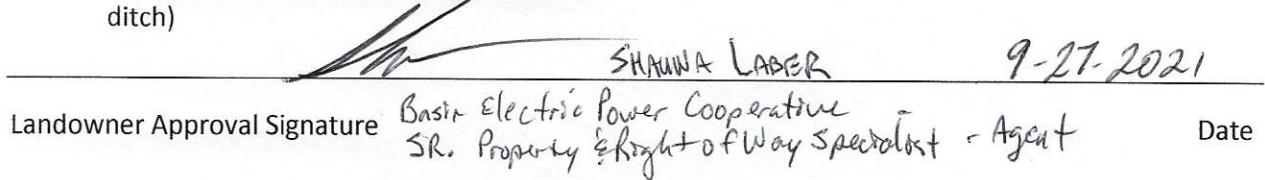 ditch)
SHAUNA LABER 9-27-2021
Landowner Approval Signature Basin Electric Power Cooperative
SR. Property & Right of Way Specialist - Agent Date